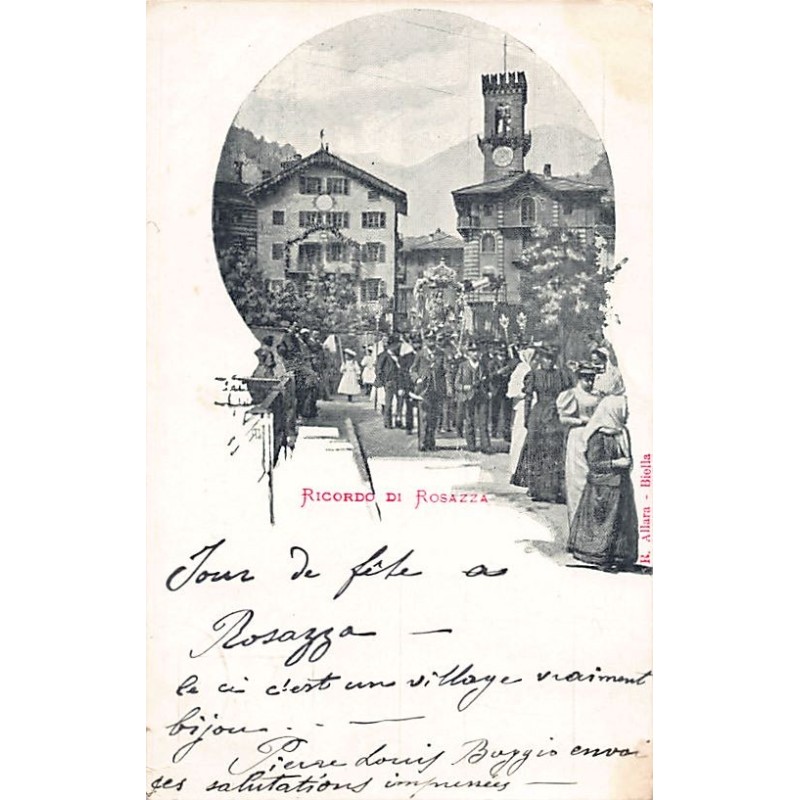 RICORDO DI ROSAZZA
R. Allara - Biella
Jour de fête a
Rosazza —
le ci c'est un village vraiment
bijou . . —
Pierre Louis Boggio envoi
ses salutations —